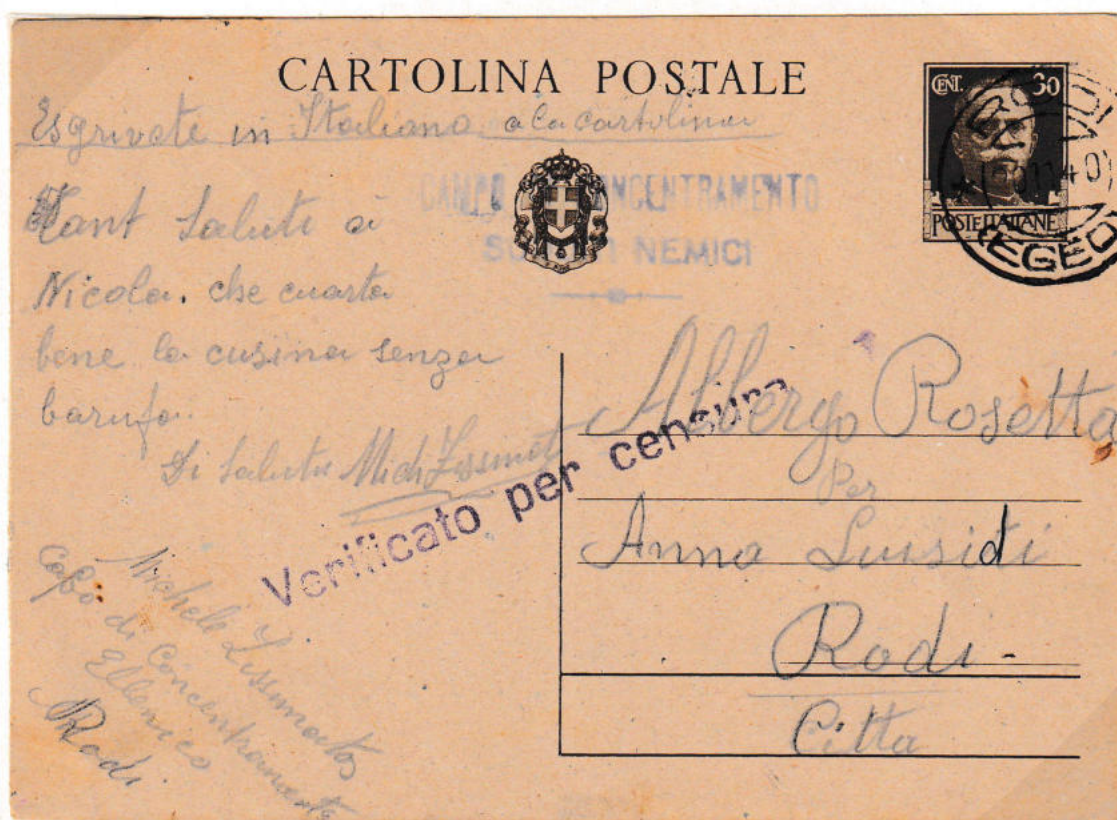 CARTOLINA POSTALE
CENT. 30
POSTE ITALIANE
RODI
EGEO
Esgrivete in Italiano a la cartolina
CAMPO CONCENTRAMENTO
NEMICI
Tant Saluti ai
Nicola. che cuarta
bene la cusina senza
barufa.
Di Saluta
Verificato per censura
Albergo Rosetta
Per
Anna
Rodi -
Citta
Michele
di Concentramento
Ellenico
Rodi.